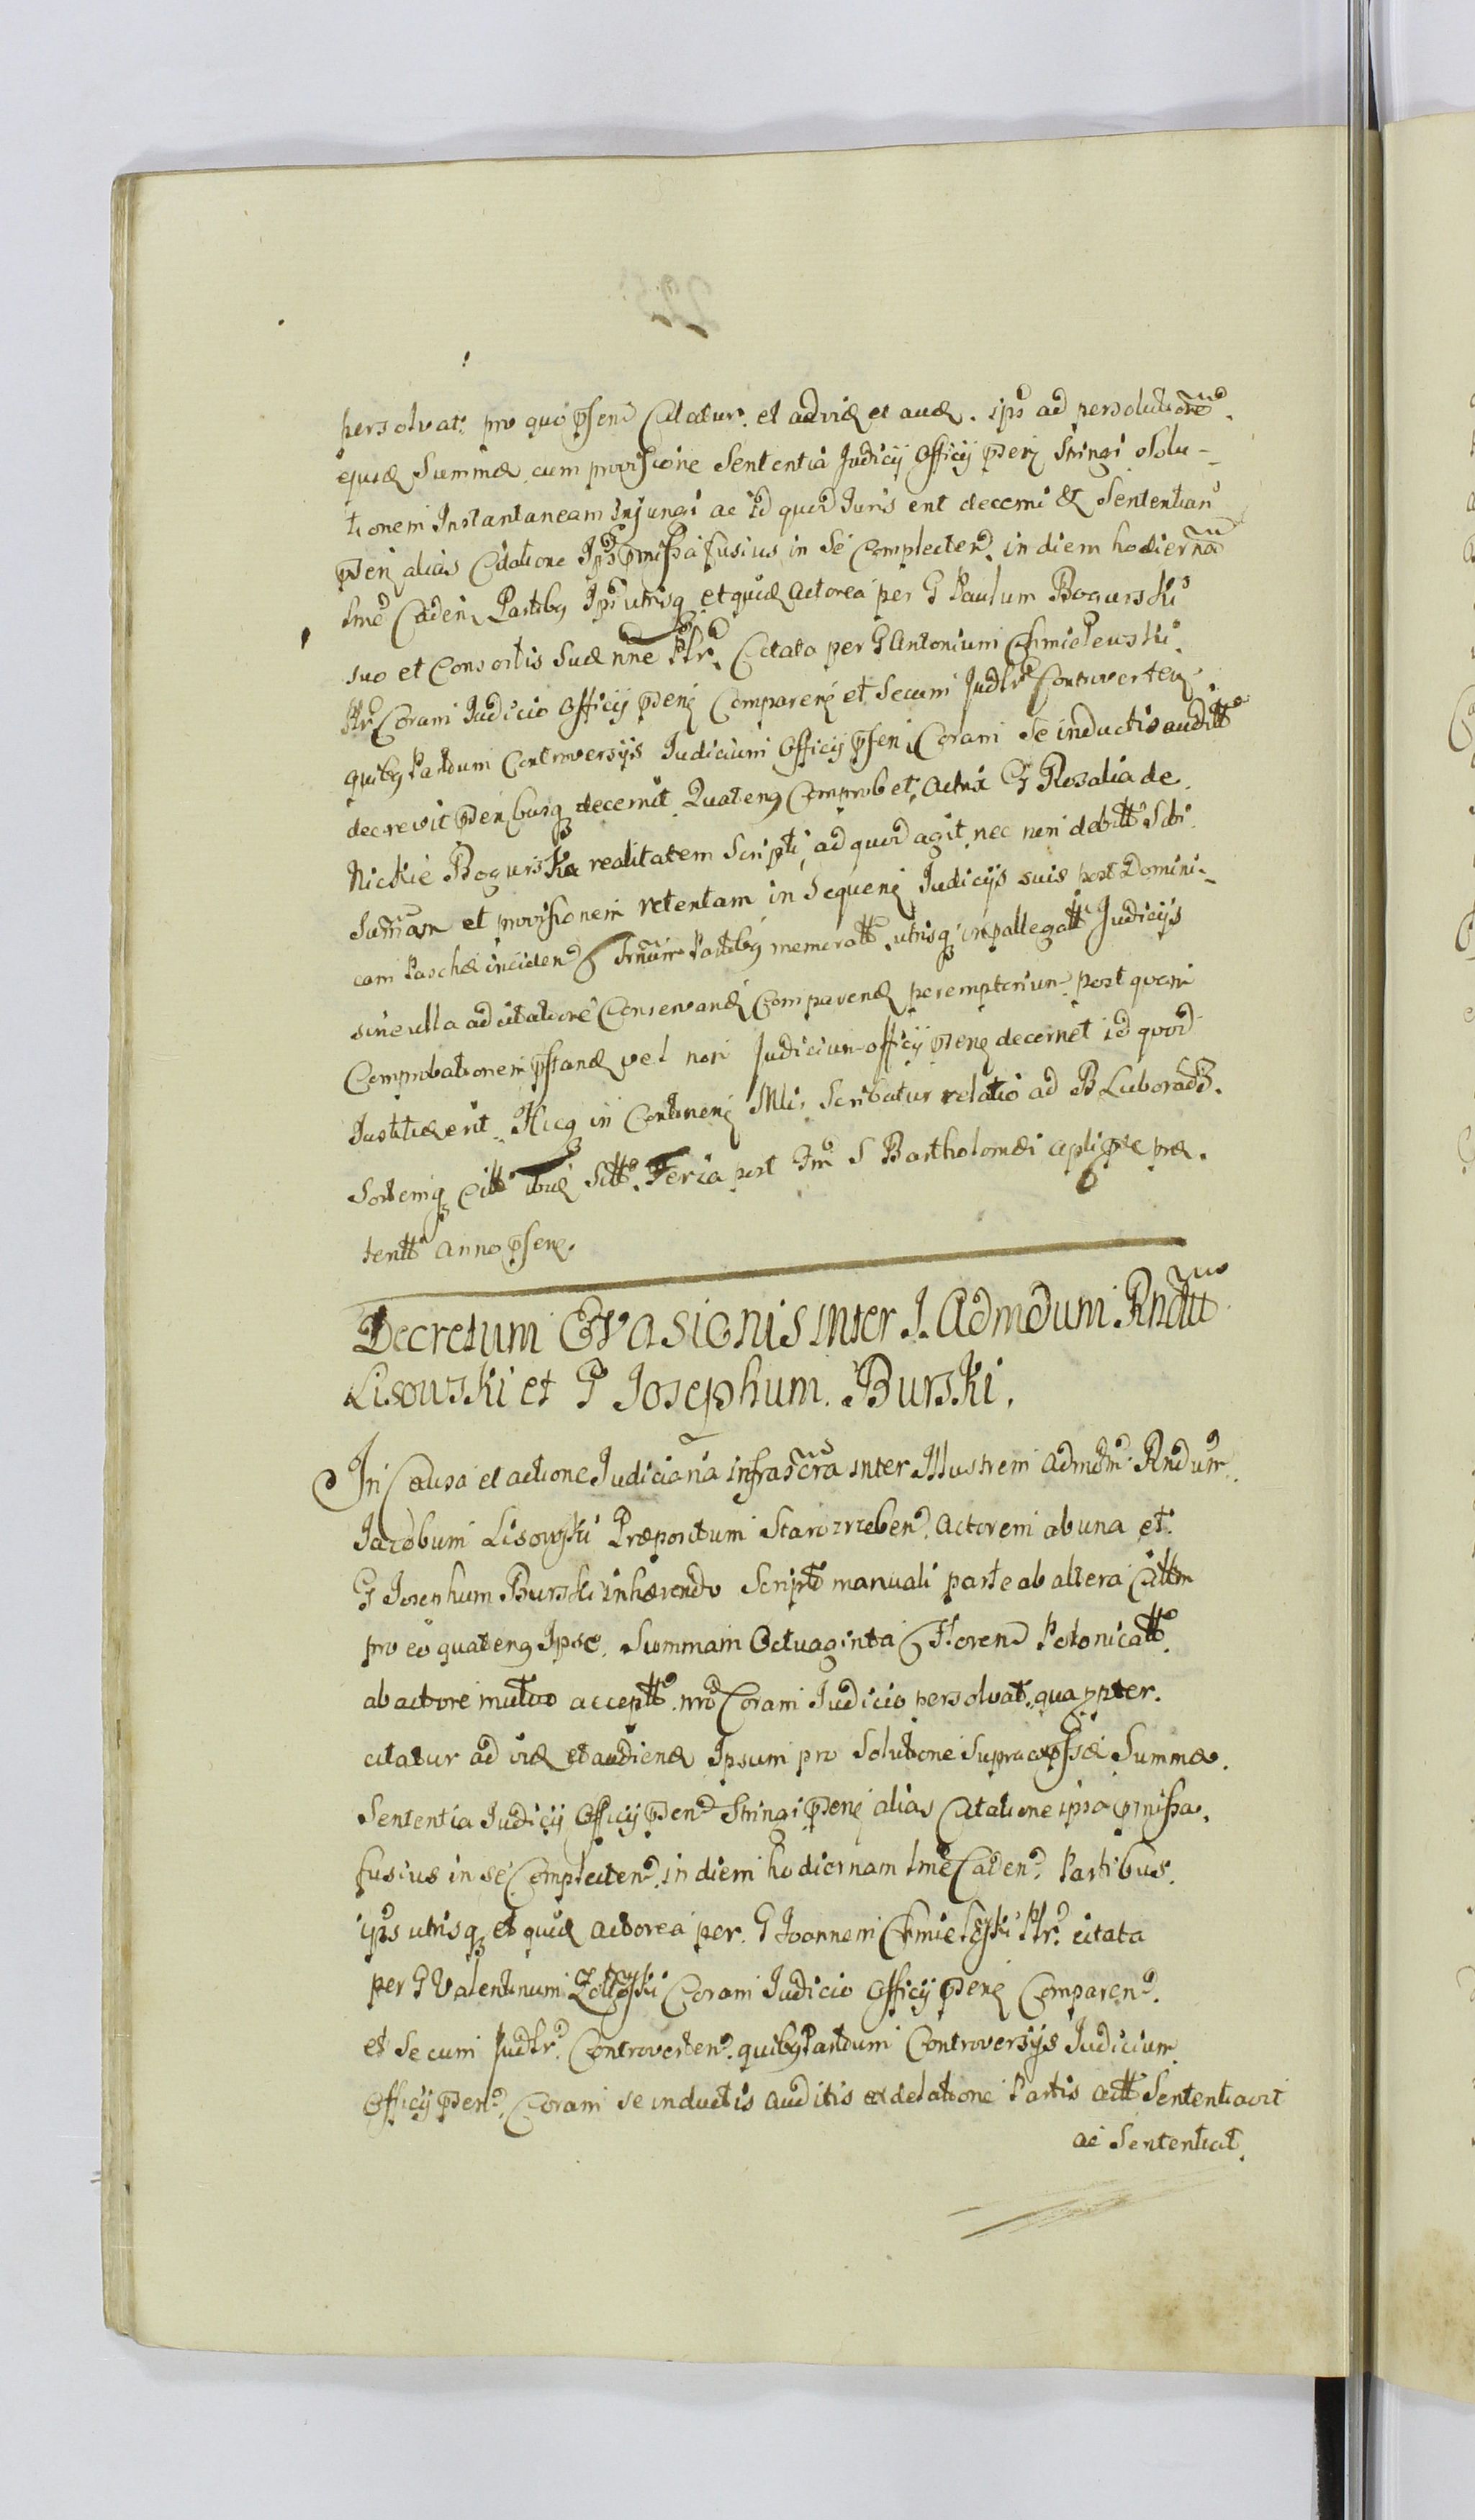 persolvat. pro quo pſenᵈ Citatur. et ad viđ et auđ. ipᵈ ad persolutionēᵈ.
ejusđ Summæ cum proviſione Sententia Judicij Officij pđenꝫ Stringi Solu-
tionem Instantaneam Injungi ac id quod Iuris erit decerni & Sententiari
pđenꝫ alias Citatione Ipsᵈ pmiſsa fusius in Se Complectenᵈ. in diem hodiernā
tmē Cadenꝫ Partibꝫ Ipsis utrisqꝫ et quiđ Actorea per G Paulum Bogurski
suo et Consortis Suæ nn̄e Pltrᵈ. Citata per G Antonium Chmielewski
Pltrᵈ Coram Judicio Officij pđenꝫ Comparenꝫ et Secum Judlrᵈ Controvertenꝫ.
quibꝫ Partium Controversijs Judicium Officij pſenꝫ Coram Se inductis auditt°
decrevit pđenꝫbusqꝫ decernit. Quatenꝫ Comprobet Actrix G Rosalia de
Nickie Bogurska realitatem Scripti, ad quod agit, nec non debitt° Sibi
Sum̄am et proviſionem retentam in Sequenꝫ Judicijs suis post Domini-
cam Paschæ incidenᵈ Trm̄um Partibꝫ memoratt° utrisqꝫ in pallegatt° Judicijs
sine ulla adcitatione Conservanđ Comparenđ peremptorium post quem
Comprobationem pſtanđ vel non Judicium officij pđenꝫ decernet id quod
Justitiæ erit. Hicqꝫ in Continenꝫ Mli. Scribatur relatio ad B Luboradz.
Sortemqꝫ Citt° ibiđ Sitt°. Feria post Fm̄ S Bartholomæi Apli pxe præ.
teritt° anno pſenꝫ.
Decretum Evasionis inter I. Admodum. Rndūm
Lisowski et G Josephum. Burski.
In Causa et actione Judiciaria infrascrā inter Illustrem Admdm̄. Rndūm
Jacobum Lisowski Præpositum Starozrzebenᵈ. Actorem ab una et.
G Josephum Burski inhærendo Scripto manuali parte ab altera Cittm̄
pro eo quatenꝫ Ipse. Summam Octuaginta Florenᵈ Polonicatt°
ab actore mutuo acceptt° nrō Coram Judicio persolvat. qua ppter.
citatur ad viđ et audienđ Ipsum pro Solutione Supraexpſsæ Summæ.
Sententia Judicij Officij pđenᵈ Stringi pđenꝫ alias Citatione ipsa pmiſsa.
fusius in se Complectenᵈ. in diem hodiernam tmē Cadenᵈ. Partibus.
ipsis utrisqꝫ et quiđ actorea per. G Joannem Chmielewski Pltrᵈ. citata
per G Valentinum Żółtowski Coram Judicio Officij pđenꝫ Comparenᵈ.
et Secum Judlrᵈ. Controvertenᵈ. quibꝫ Partium Controversijs Judicium
Officij pđenᵈ. Coram se inductis auditis ex delatione Partis Actt° Sententiavit
ac Sententiat.